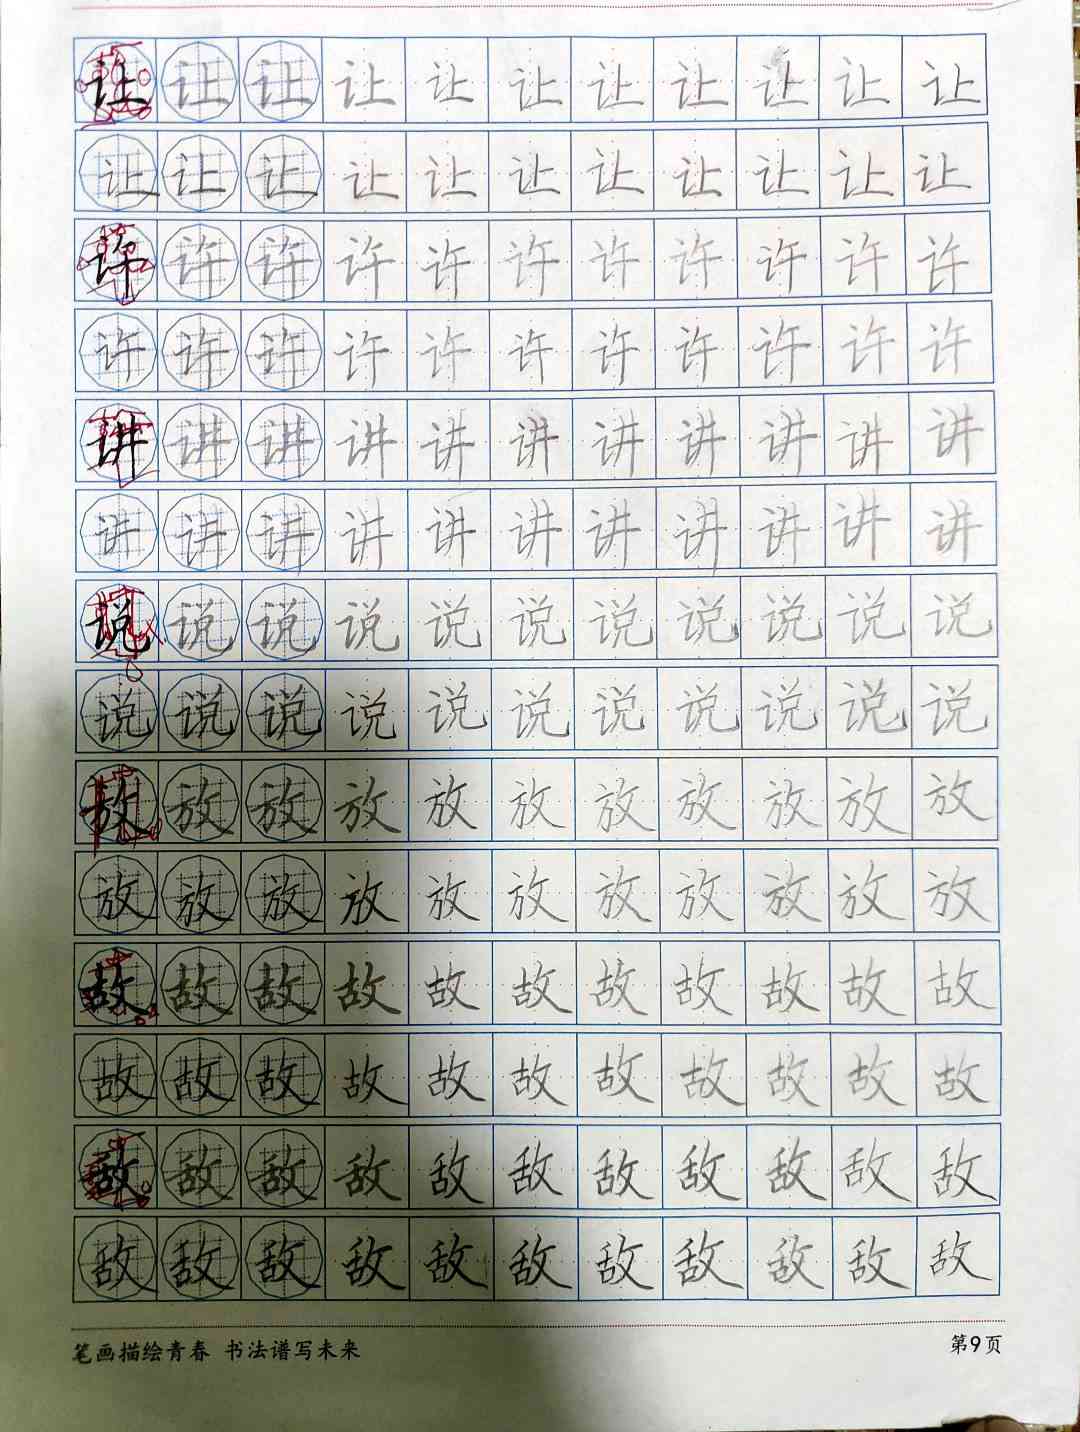 让让让让让让让让让让让
让让让让让让让让让让让
许许许许许许许许许许许
许许许许许许许许许许许
讲讲讲讲讲讲讲讲讲讲讲
讲讲讲讲讲讲讲讲讲讲讲
说说说说说说说说说说说
说说说说说说说说说说说
放放放放放放放放放放放
放放放放放放放放放放放
故故故故故故故故故故故
故故故故故故故故故故故
敌敌敌敌敌敌敌敌敌敌敌
敌敌敌敌敌敌敌敌敌敌敌
笔画描绘青春 书法谱写未来
第9页